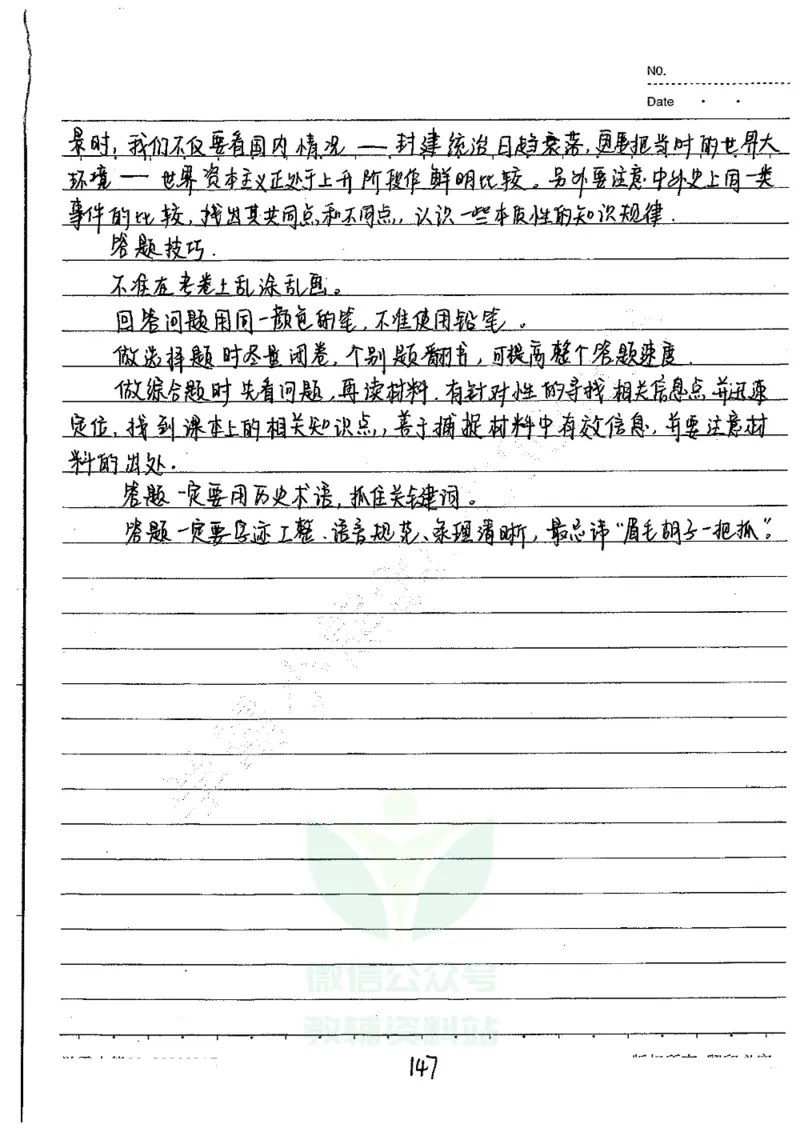 NO.
Date
景时，我们不仅要看国内情况 — 封建统治日趋衰落，更要把当时的世界大
环境 — 世界资本主义正处于上升阶段作鲜明比较。另外要注意中外史上同一类
事件的比较，找出其共同点和不同点，认识一些本质性的知识规律.
答题技巧.
不准在考卷上乱涂乱画。
回答问题用同一颜色的笔，不准使用铅笔。
做选择题时尽量闭卷，个别题翻书，可提高整个答题速度.
做综合题时先看问题，再读材料，有针对性的寻找相关信息点并迅速
定位，找到课本上的相关知识点，善于捕捉材料中有效信息，并要注意材
料的出处.
答题一定要用历史术语，抓住关键词。
答题一定要字迹工整、语言规范、条理清晰，最忌讳“眉毛胡子一把抓”。
微信公众号
教辅资料站
147